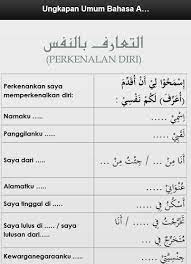 Ungkapan Umum Bahasa A...
التعارف بالنفس
(PERKENALAN DIRI)
Perkenankan saya memperkenalkan diri:
اِسْمَحُوْا لِيْ أَنْ أُقَدِّمَ
(أُعَرِّفَ) لَكُمْ نَفْسِيْ :
Namaku .....
اِسْمِيْ .....
Panggilanku .....
Saya dari .....
أَنَا مِنْ ... / جِئْتُ مِنْ ...
Alamatku .....
عُنْوَانِيْ .....
Saya tinggal di .....
أَسْكُنُ فِيْ .....
Saya lulus di ..... / saya
lulusan dari.....
تَخَرَّجْتُ فِيْ ... / أَنَا
مُتَخَرِّجٌ فِيْ ...
Kewarganegaraanku